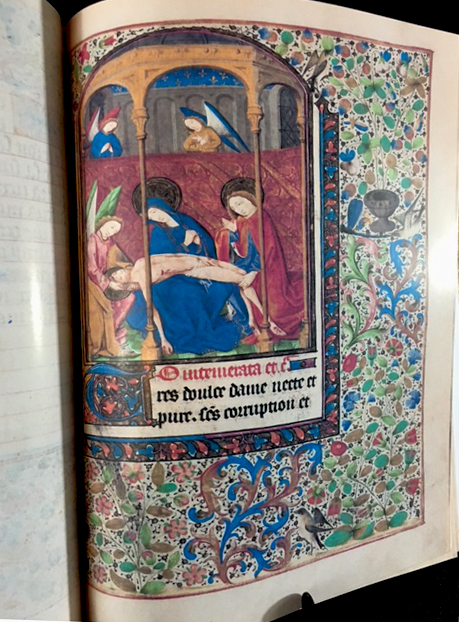 O intemerata et c̄
Tres doulce dame necte et
pure. sẽs corruption et